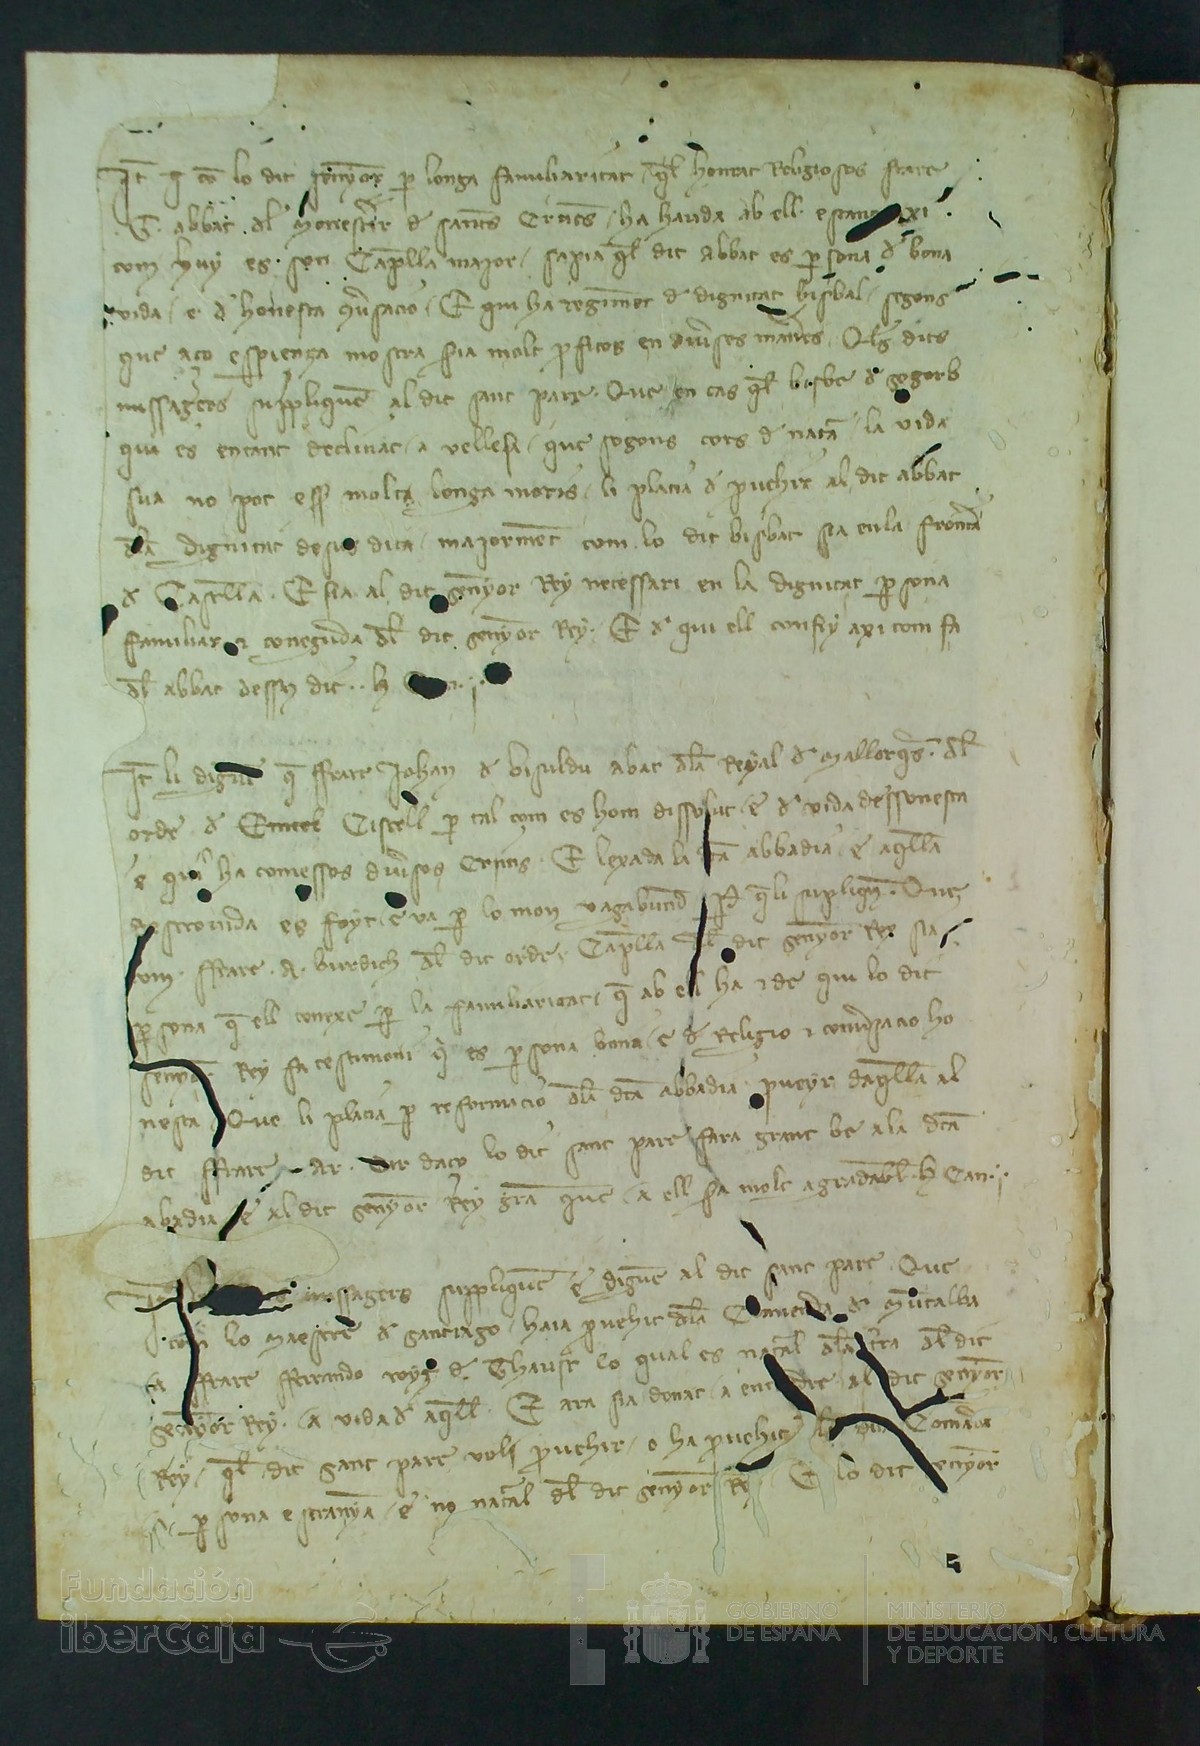 It q̄ cō lo dit senyor p longa familiaritat q̄l honrat Religios frare
.G. abbat dl Monestir d santes Creus ha hauda ab ell estant axi
com huy es son Capella major sapia q̄l dit abbat es p sona d bona
vida e d honesta 9u̇sacio E qui ha regimēt d dignitat bisbal segons
que aço espiença mostra sia molt pfitos en diu̇ses maneres Q̄ls dits
missagers suppliquē al dit sant pare Que en cas q̄l bisbe d sogorb
qui es entant declinat a vellesa que segons cors d natā la vida
sua no pot ess molt longa moris li placia d puehir al dit abbat
dla dignitat desus dita majormēt com lo dit bisbat sia en la frontā
d Castella E sia al dit senyor Rey necessari en la dignitat p sona
familiar ⁊ coneguda dl dit senyor Rey E d qui ell confiy axi com fa
dl abbat dessus dit
It li diguē q̄ ffrare Johan d bisuldu abat dla Reyal d Mallorq̄s dl
orde d Cistell p tal com es hom dissolut e d vida dessonesta
e qui ha comessos diu̇ses crims E lexada la dta abbadia e aq̄lla
es foyt e va p lo mon vagabund q̄ li supliq̄n Que
com ffrare A. burdich dl dit orde Capella dl dit senyor Rey sia
p sona q̄ ell conexe p la familiaritat q̄ ab ell ha ⁊ de qui lo dit
senyor Rey fa testimoni q̄ es p sona bona e d Religio ⁊ conu̇sacio ho
nesta Que li placia p reformacio dla dta abbadia pueyr daq̄lla al
dit ffrare Ar. Car daço lo dit sant pare fara grant be a la dta
abadia e al dit senyor Rey grā que a ell sia molt agradabl
missagers suppliquē e diguē al dit sant pare Que
com lo maestre d santiago haia puehit dla Comanda d Muntalba
a ffrare fferrando royz d Thaust lo qual es natal dla tra dl dit
senyor Rey a vida d aq̄ll E ara sia donat a entendre al dit senyor
Rey q̄l dit sant pare voli puehir o ha puehit la dita Comāda
p sona estranya e no natal dl dit senyor Rey E lo dit senyor
Fundación
iberCaja
GOBIERNO
DE ESPAÑA
MINISTERIO
DE EDUCACIÓN, CULTURA
Y DEPORTE